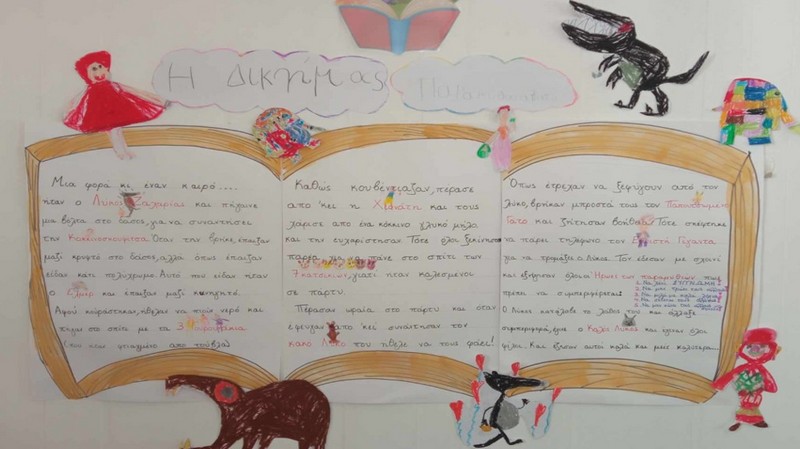 Η δική μας
Μια φορά κι έναν καιρό....
ήταν ο Λύκος Ζαχαρίας και πήγαινε
μια βόλτα στο δάσος, για να συναντήσει
την Κοκκινοσκουφίτσα. Όταν την βρήκε, έπαιξαν
μαζί κρυφτό στο δάσος, αλλά όπως έπαιζαν
είδαν κάτι πολύχρωμο. Αυτό που είδαν ήταν
ο Έλμερ και έπαιξαν μαζί κυνηγητό.
Αφού κουράστηκαν, ήθελαν να πιουν νερό και
πήγαν στο σπίτι με τα 3 Γουρουνάκια
(που ήταν φτιαγμένο από τούβλα)
Καθώς κουβέντιαζαν, πέρασε
από 'κει η Χιονάτη και τους
χάρισε από ένα κόκκινο γλυκό μήλο
και την ευχαρίστησαν. Τότε όλοι ξεκίνησαν
παρέα για να πάνε στο σπίτι των
7 κατσικιών, γιατί ήταν καλεσμένοι
σε πάρτυ.
Πέρασαν ωραία στο πάρτυ και όταν
έφευγαν από 'κει συνάντησαν τον
κακό Λύκο που ήθελε να τους φάει!
Όπως έτρεχαν να ξεφύγουν από τον
λύκο, βρήκαν μπροστά τους τον Παπουτσωμένο
Γάτο και ζήτησαν βοήθεια. Τότε σκέφτηκε
να πάρει τηλέφωνο τον Γίγαντα
για να τρομάξει ο Λύκος. Τον έδεσαν με σχοινί
και εξήγησαν όλοι οι Ήρωες των παραμυθιών πως
πρέπει να συμπεριφέρεται
Ο Λύκος κατάλαβε το λάθος του και άλλαξε
συμπεριφορά, έγινε ο Καλός Λύκος και έγιναν όλοι
φίλοι. Και έζησαν αυτοί καλά και μεις καλύτερα...